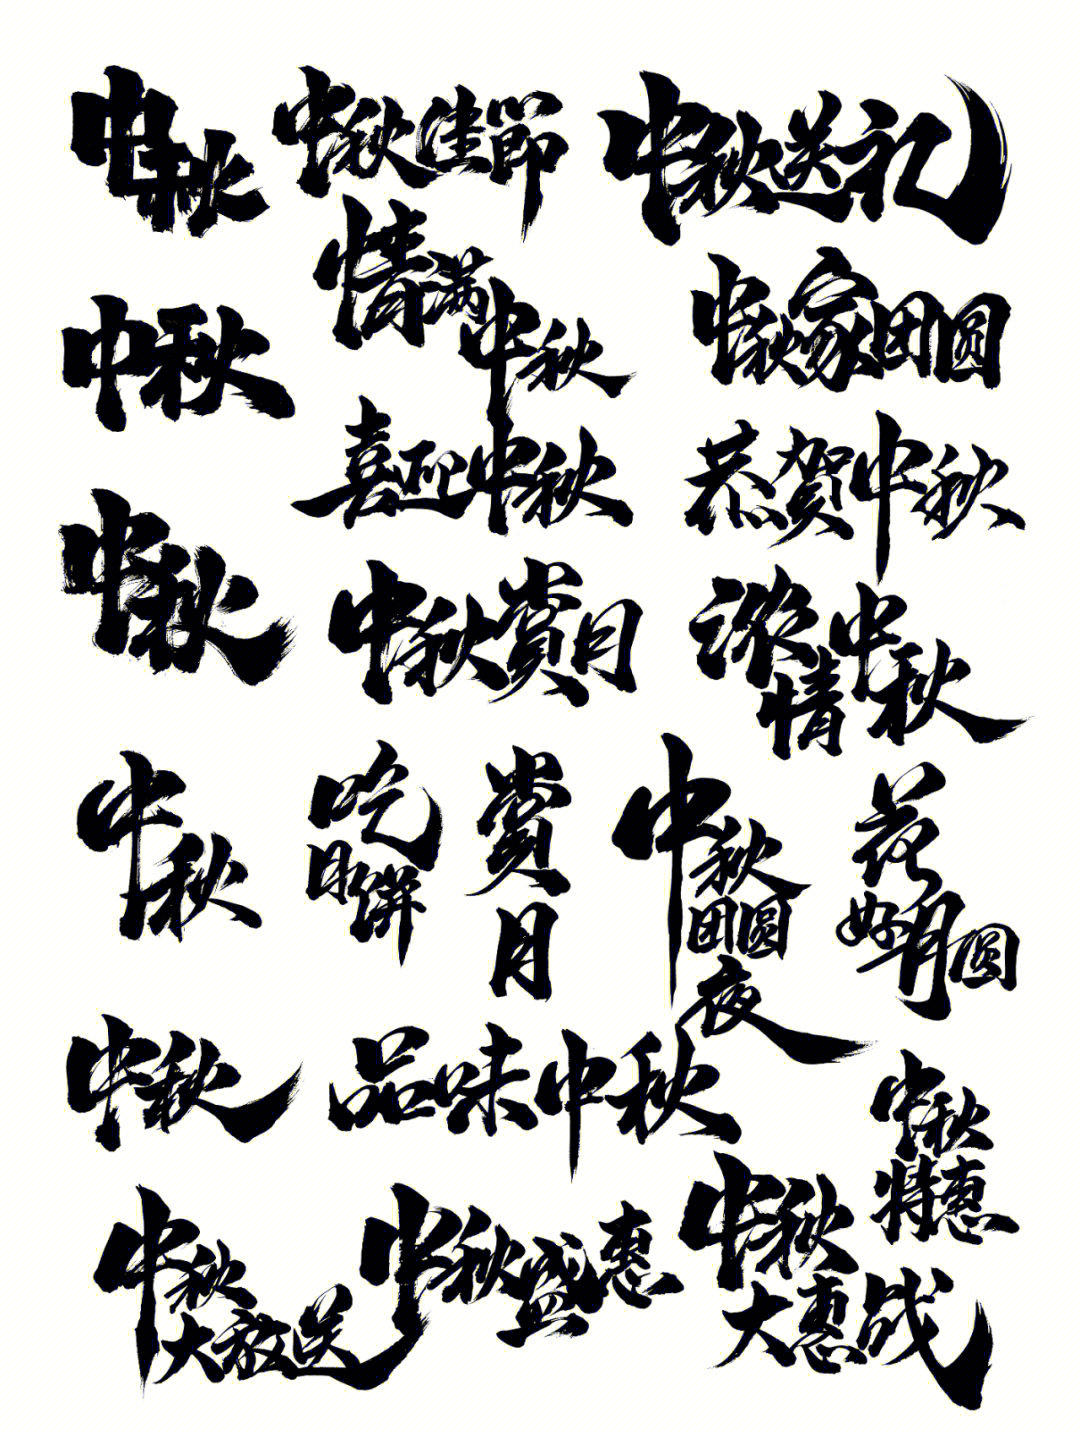 中秋
中秋佳節
中秋送礼
情满中秋
中秋家团圆
中秋
喜迎中秋
恭贺中秋
中秋
中秋赏月
浓情中秋
中秋
吃月饼
赏月
中秋团圆夜
花好月圆
中秋
品味中秋
中秋特惠
中秋大放送
中秋盛惠
中秋大惠战